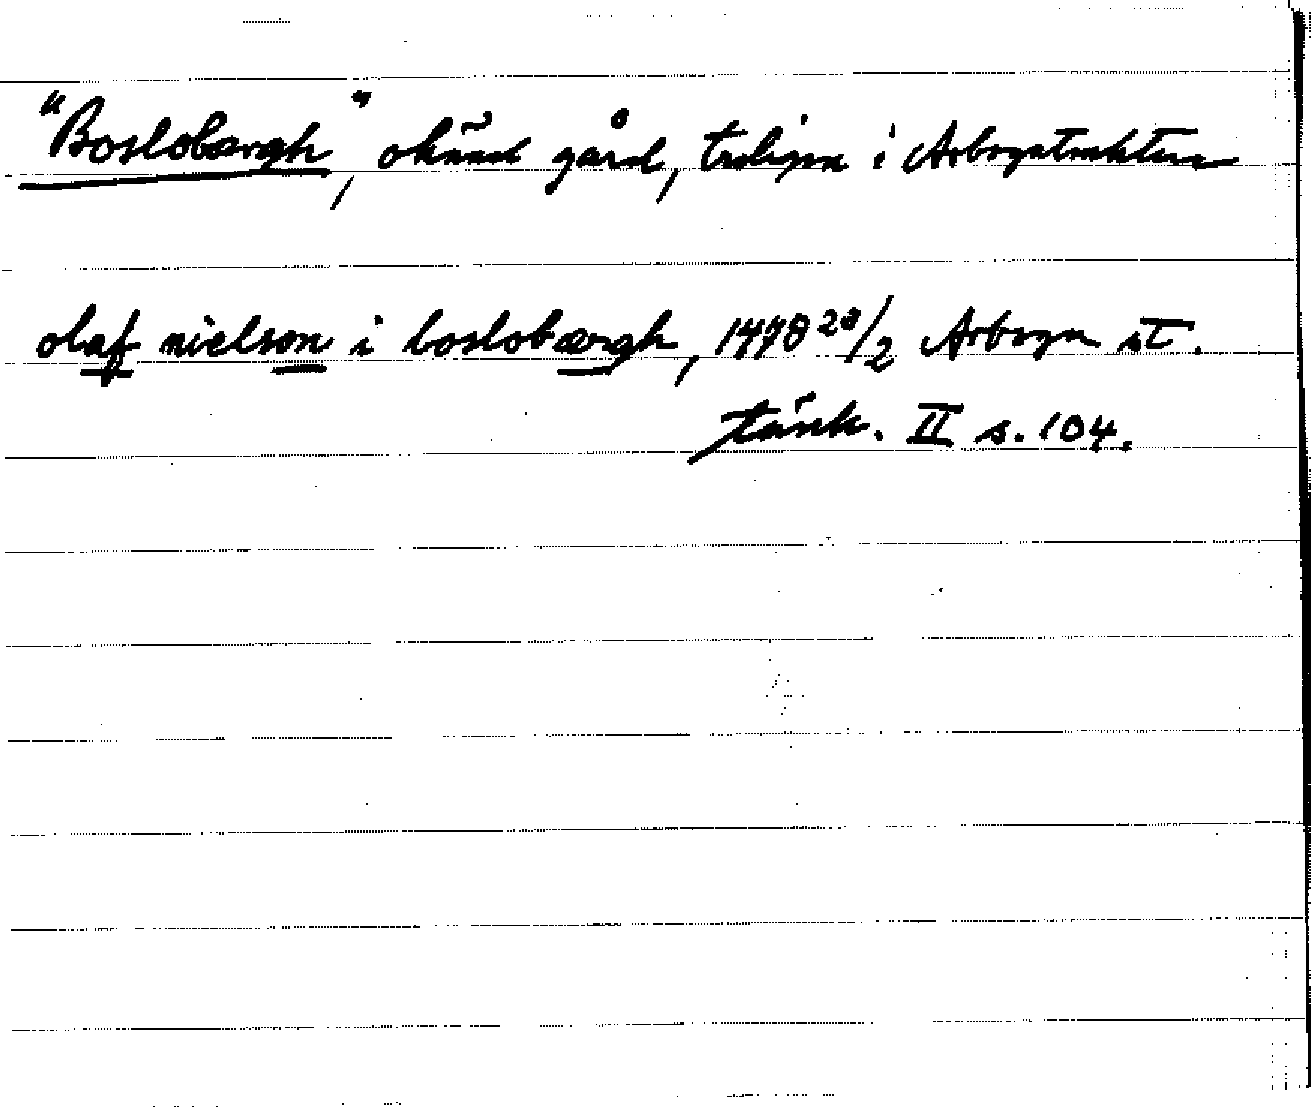 "Boslobærgh", okänd gård, troligen i Arbogatrakten
olaf nielson i boslobærgh, 1478 20/2 Arboga st.
tänk. II s. 104.